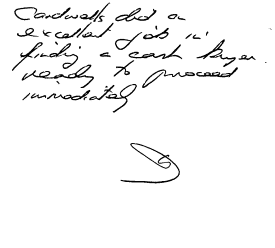 Cardwells did an
excellent job in
finding a cash buyer
ready to proceed
immediately